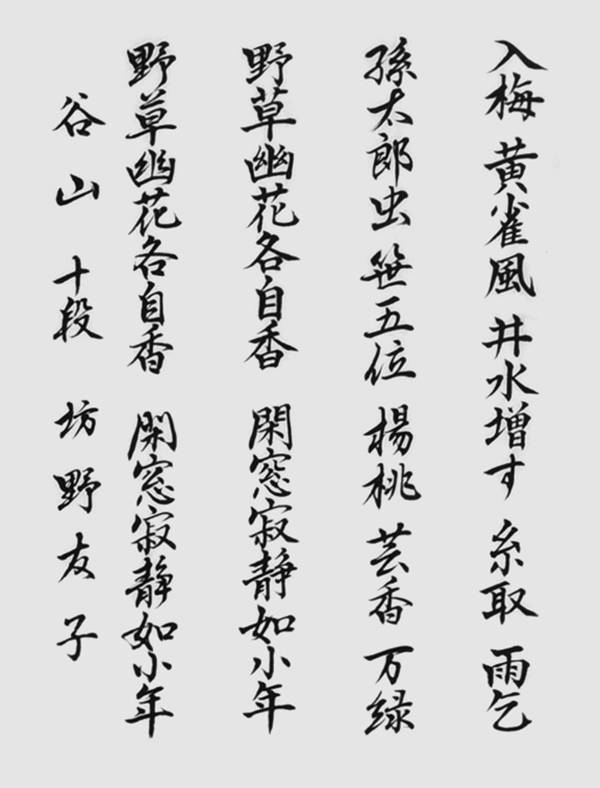 入梅 黄雀風 井水増す 糸取 雨乞
孫太郎虫 笹五位 楊桃 芸香 万緑
野草幽花各自香 閑窓寂静如小年
野草幽花各自香 閑窓寂静如小年
谷山 十段 坊野友子